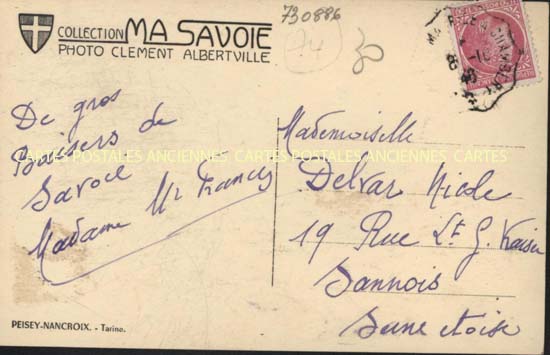 COLLECTION MA SAVOIE
PHOTO CLEMENT ALBERTVILLE
730886
De gros
Baisers de
Savoie
Madame
Mademoiselle
Delvar Nicole
19 Rue Lt G.
Sannois
Seine et oise
CARTES POSTALES ANCIENNES CARTES POSTALES ANCIENNES CARTES
PEISEY-NANCROIX. - Tarine.